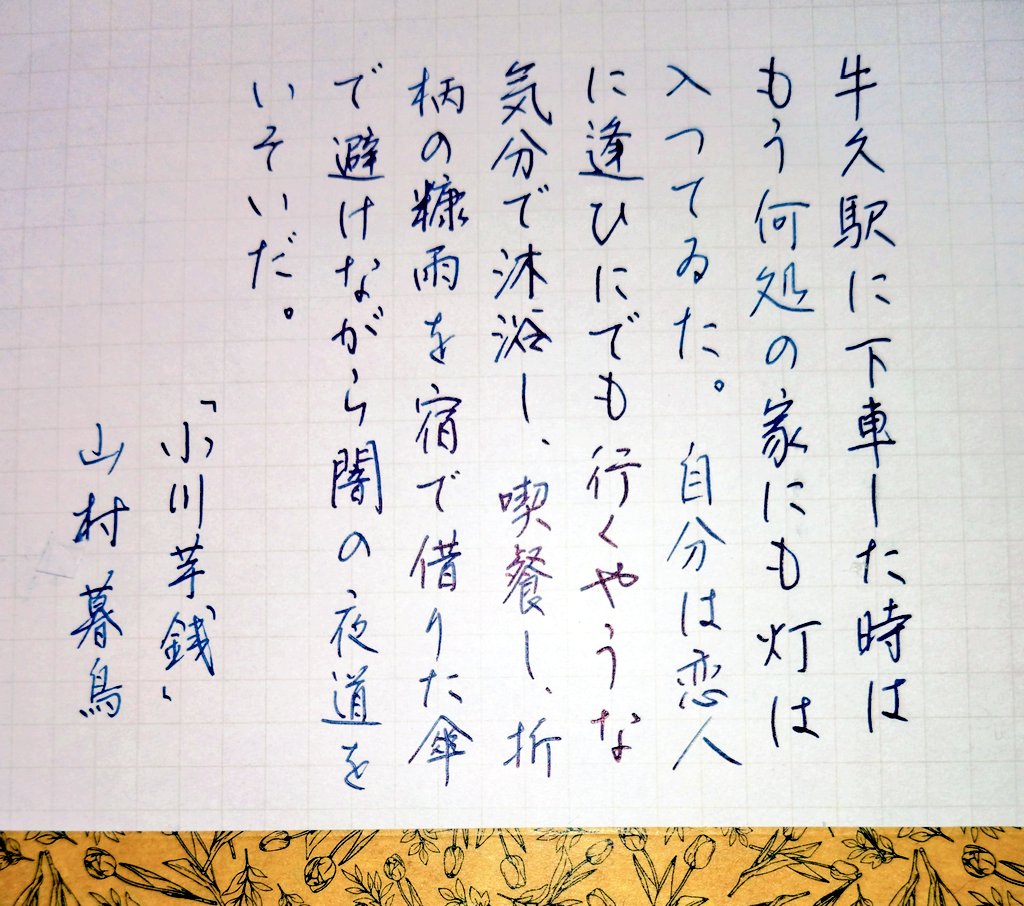 牛久駅に下車した時は
もう何処の家にも灯は
入つてゐた。自分は恋人
に逢ひにでも行くやうな
気分で沐浴し、喫餐し、折
柄の糠雨を宿で借りた傘
で避けながら闇の夜道を
いそいだ。
「小川芋銭」
山村暮鳥